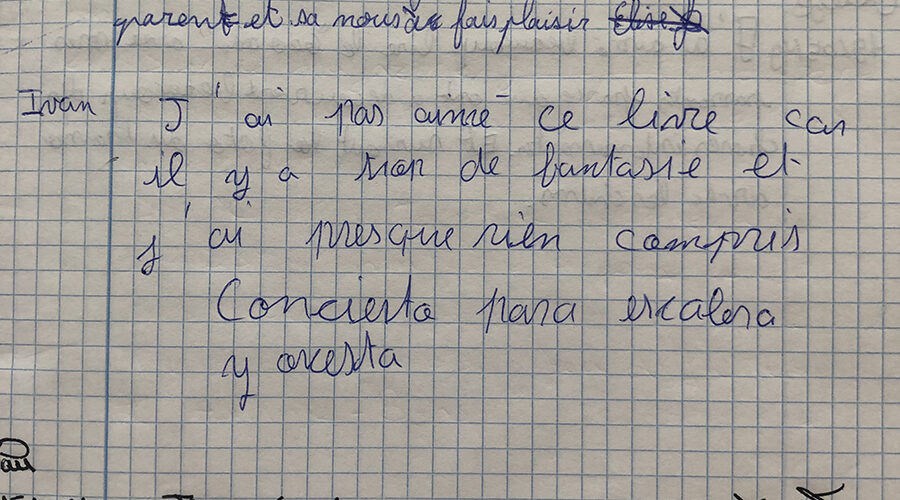 parent et sa nous a fais plaisir Elise
Ivan J'ai pas aimé ce livre car
il y a trop de fantasie et
j'ai presque rien compris
Concierto para escalera
y orcesta
au